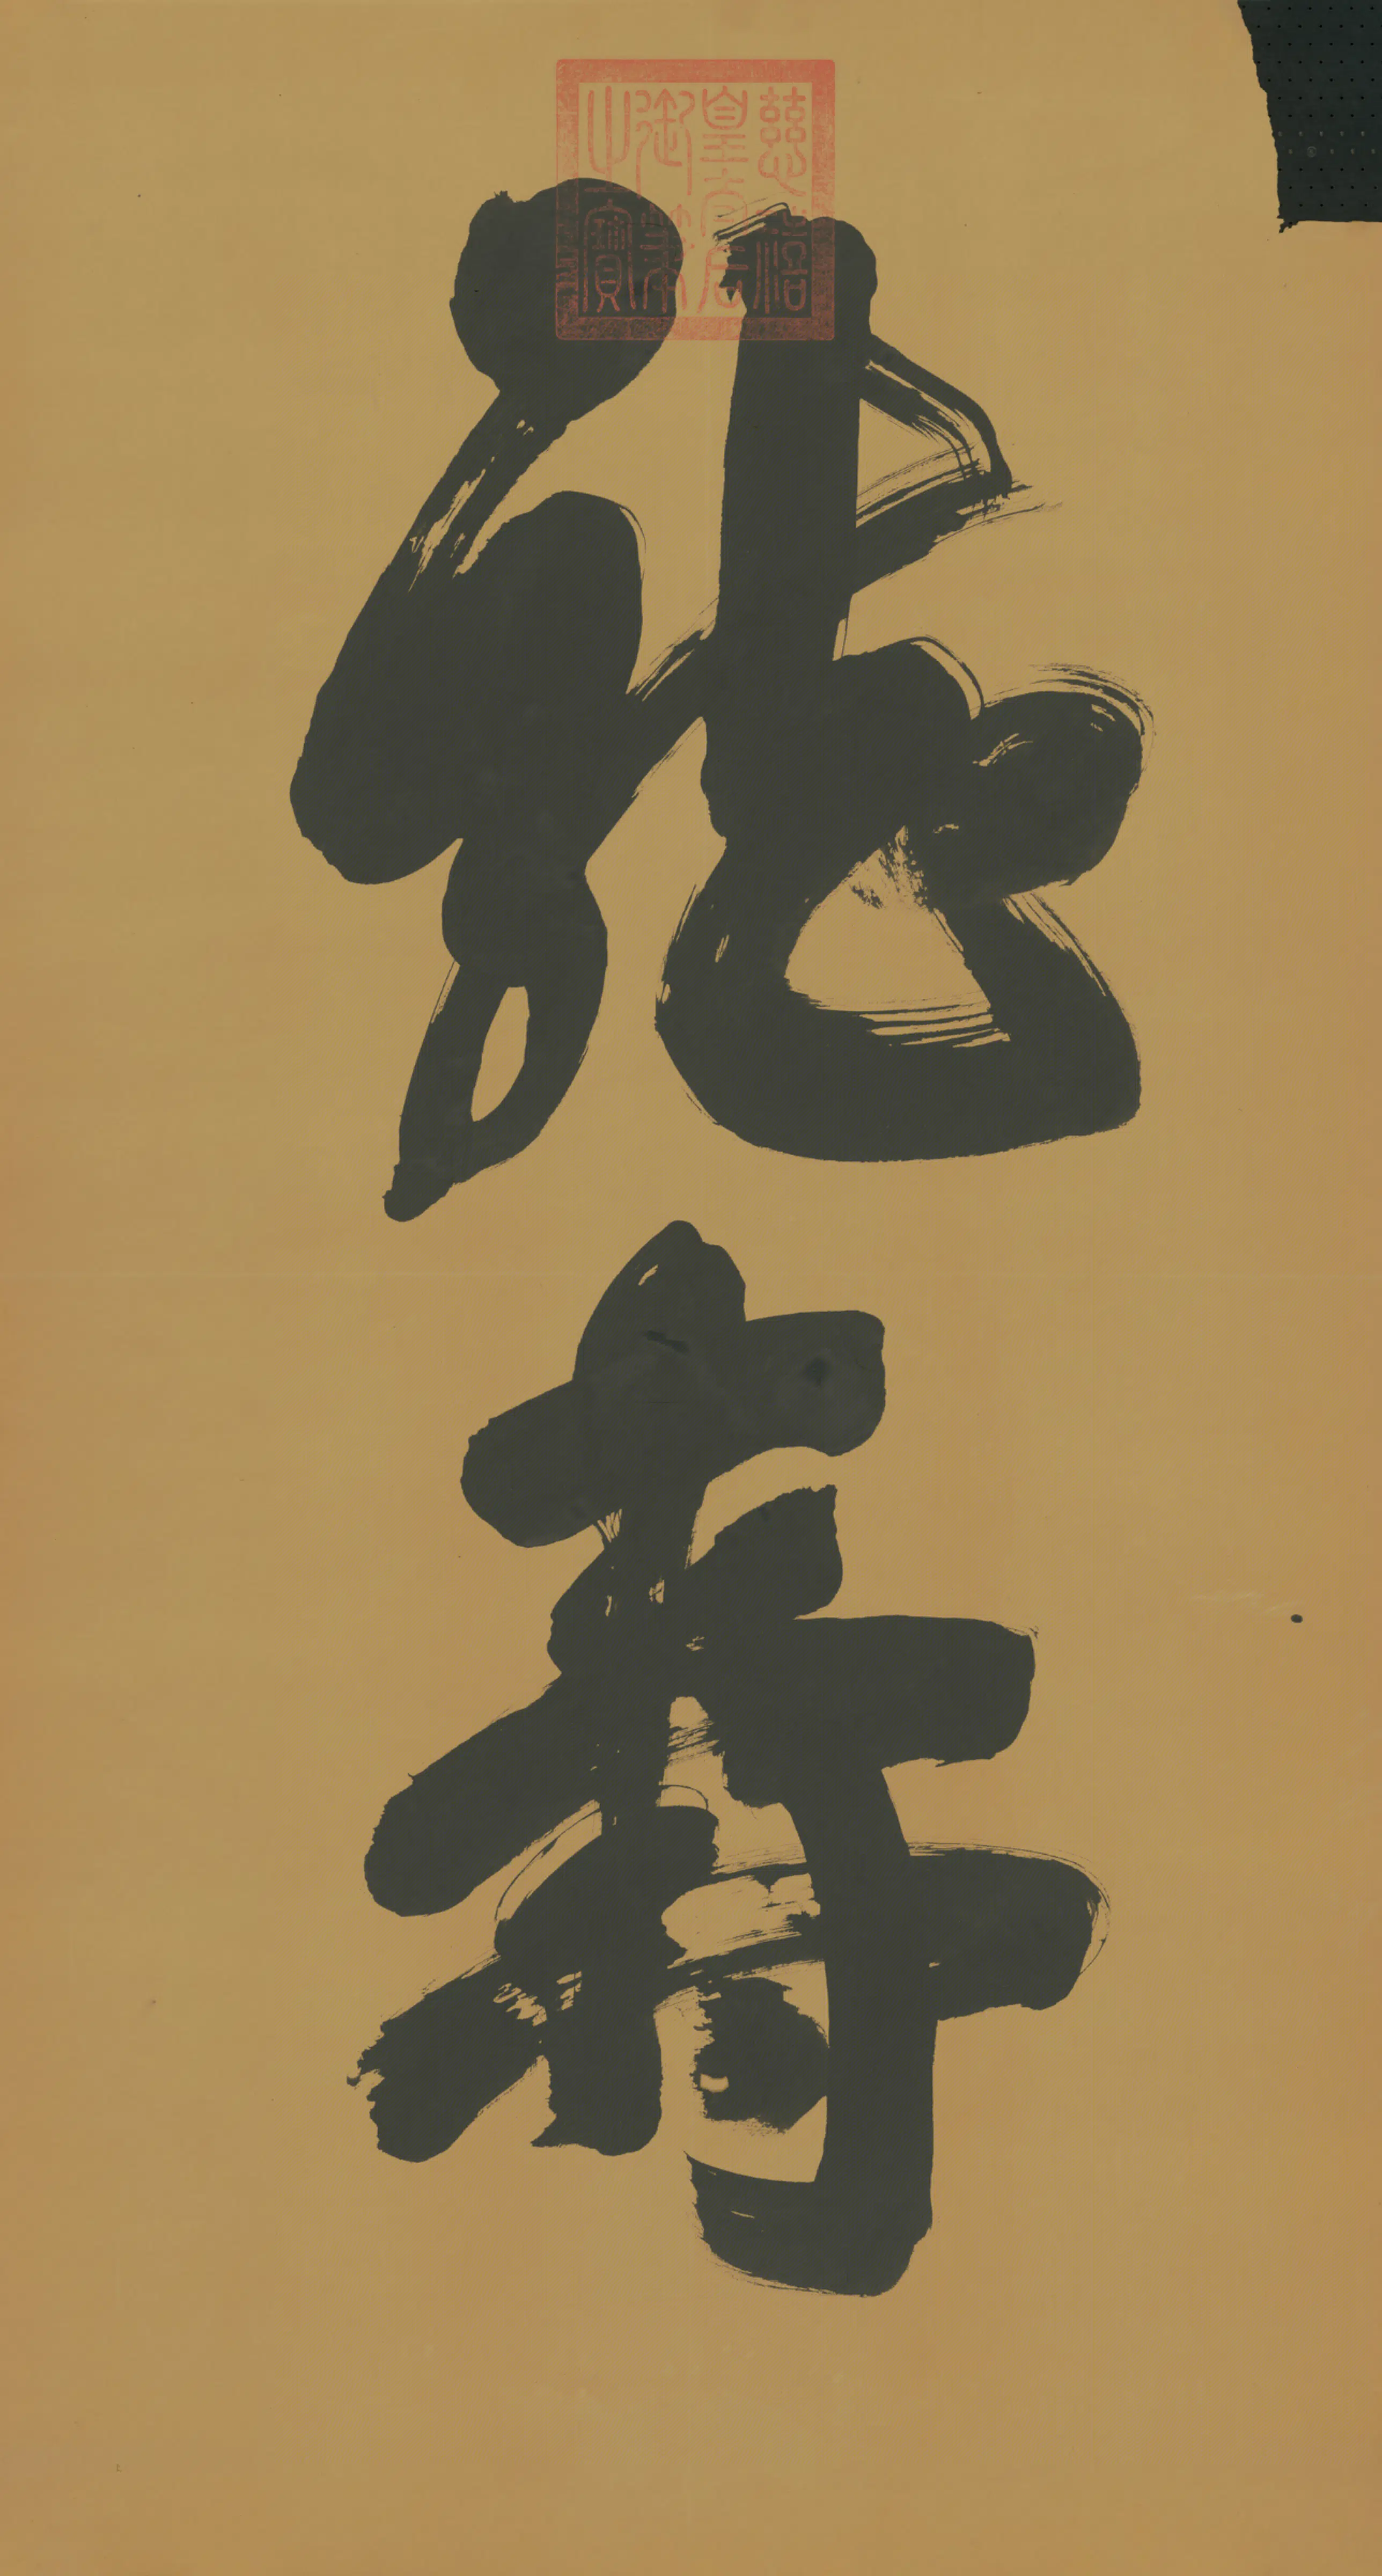 慈禧
皇太后
御筆
之寶
壽